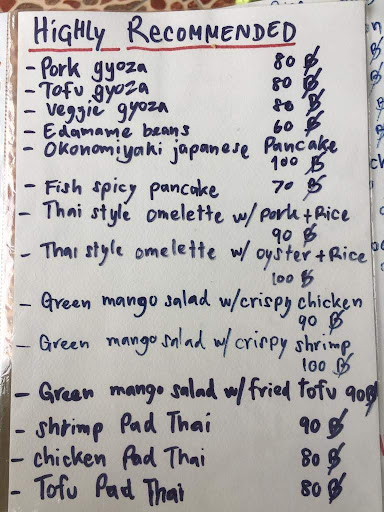 HiGHLY RECOMMENDED
- Pork gyoza 80 ฿
- Tofu gyoza 80 ฿
- Veggie gyoza 80 ฿
- Edamame beans 60 ฿
- Okonomiyaki japanese Pancake
100 ฿
- Fish spicy pancake 70 ฿
- Thai style omelette w/ pork + Rice
90 ฿
- Thai style omelette w/ oyster + Rice
100 ฿
- Green mango salad w/crispy chicken
90 ฿
- Green mango salad w/ crispy shrimp
100 ฿
- Green mango salad w/ fried tofu 90฿
- shrimp Pad Thai 90 ฿
- chicken Pad Thai 80 ฿
- Tofu Pad Thai 80 ฿